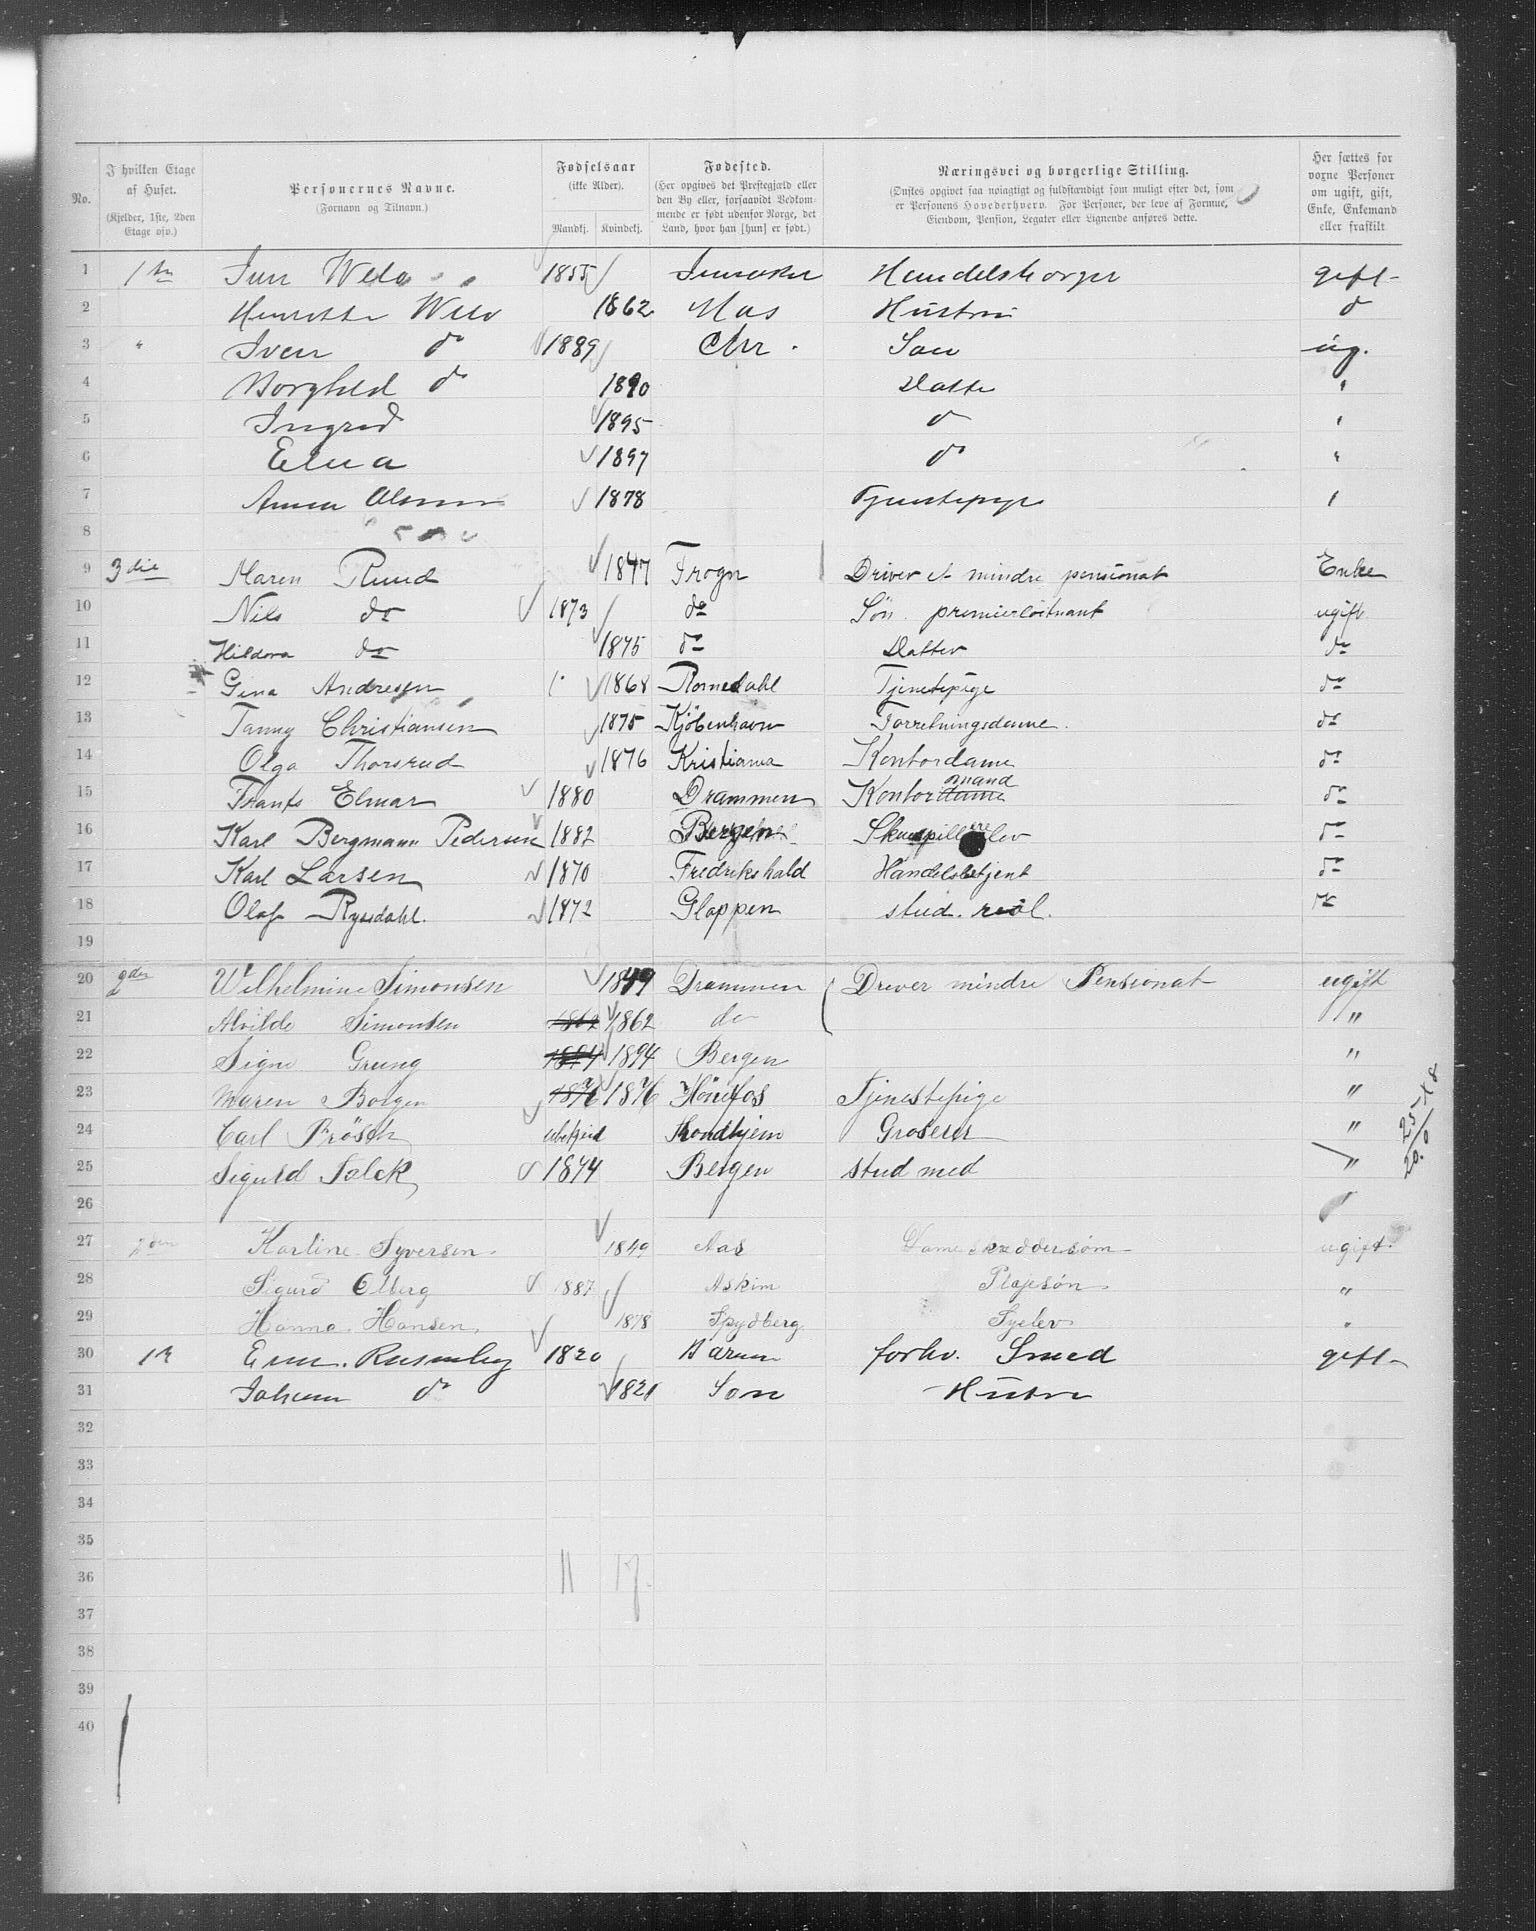 No.
I hvilken Etage af Huset.
(Kjelder, 1ste, 2den Etage osv.)
Personernes Navne.
(Fornavn og Tilnavn.)
Fødselsaar
(ikke Alder).
Mandkj. Kvindekj.
Fødested.
(Her opgives det Prestegjæld eller den By eller, forsaavidt Vedkommende er født udenfor Norge, det Land, hvor han [hun] er født.)
Næringsvei og borgerlige Stilling.
(Ønskes opgivet saa nøiagtigt og fuldstændigt som muligt efter det, som er Personens Hovederhverv. For Personer, der leve af Formue, Eiendom, Pension, Legater eller Lignende anføres dette.
Her sættes for voxne Personer om ugift, gift, Enke, Enkemand eller fraskilt
1 1855 gift
2 1862 Aas Hustru d
3 " Iver do 1889 Chr. Søn ug.
4 Borghild do 1890 Datter "
5 Ingrid 1895 do "
6 1897 do "
7 Anna 1878 Tjenestepige "
8
9 3die Maren Ruud 1847 Frogn Driver et mindre pensionat Enke
10 Nils do 1873 do Søn. premierløitnant ugift
11 Hildora do 1875 do Datter do
12 Gina Andresen 1868 Romedahl Tjenestepige do
13 Fanny Christiansen 1875 Kjøbenhavn Forretningsdame. do
14 Olga Thorsrud 1876 Kristiania Kontordame do
15 Frants Elmar 1880 Drammen Kontordame mand do
16 Karl Bergmann Pedersen 1882 Bergen Skuespillerelev do
17 Karl Larsen 1870 Fredrikshald Handelsbetjent do
18 Olaf Rysdahl. 1872 Gloppen stud. real. do
19
20 2den Wilhelmine Simonsen 1849 Drammen Driver mindre Pensionat ugift
21 Alvilde Simonsen 1862 1862 do "
22 Signe Grung 1894 1894 Bergen "
23 Maren Borgen 1876 1876 Hönefos Tjenestepige "
24 Carl ubekjend Trondhjem Groserer "
25 Sigurd Falck 1874 Bergen stud med "
26
27 2den Karline Syversen 1849 Aas Dameskreddersøm ugift.
28 Sigurd Olberg 1887 Askim Plejesøn "
29 Hanna Hansen 1878 Spydberg Syelev "
30 1820 Bærum forhv. Smed gift
31 do 1821 Son Hustru
32
33
34
35
36 11 17.
37
38
39
40